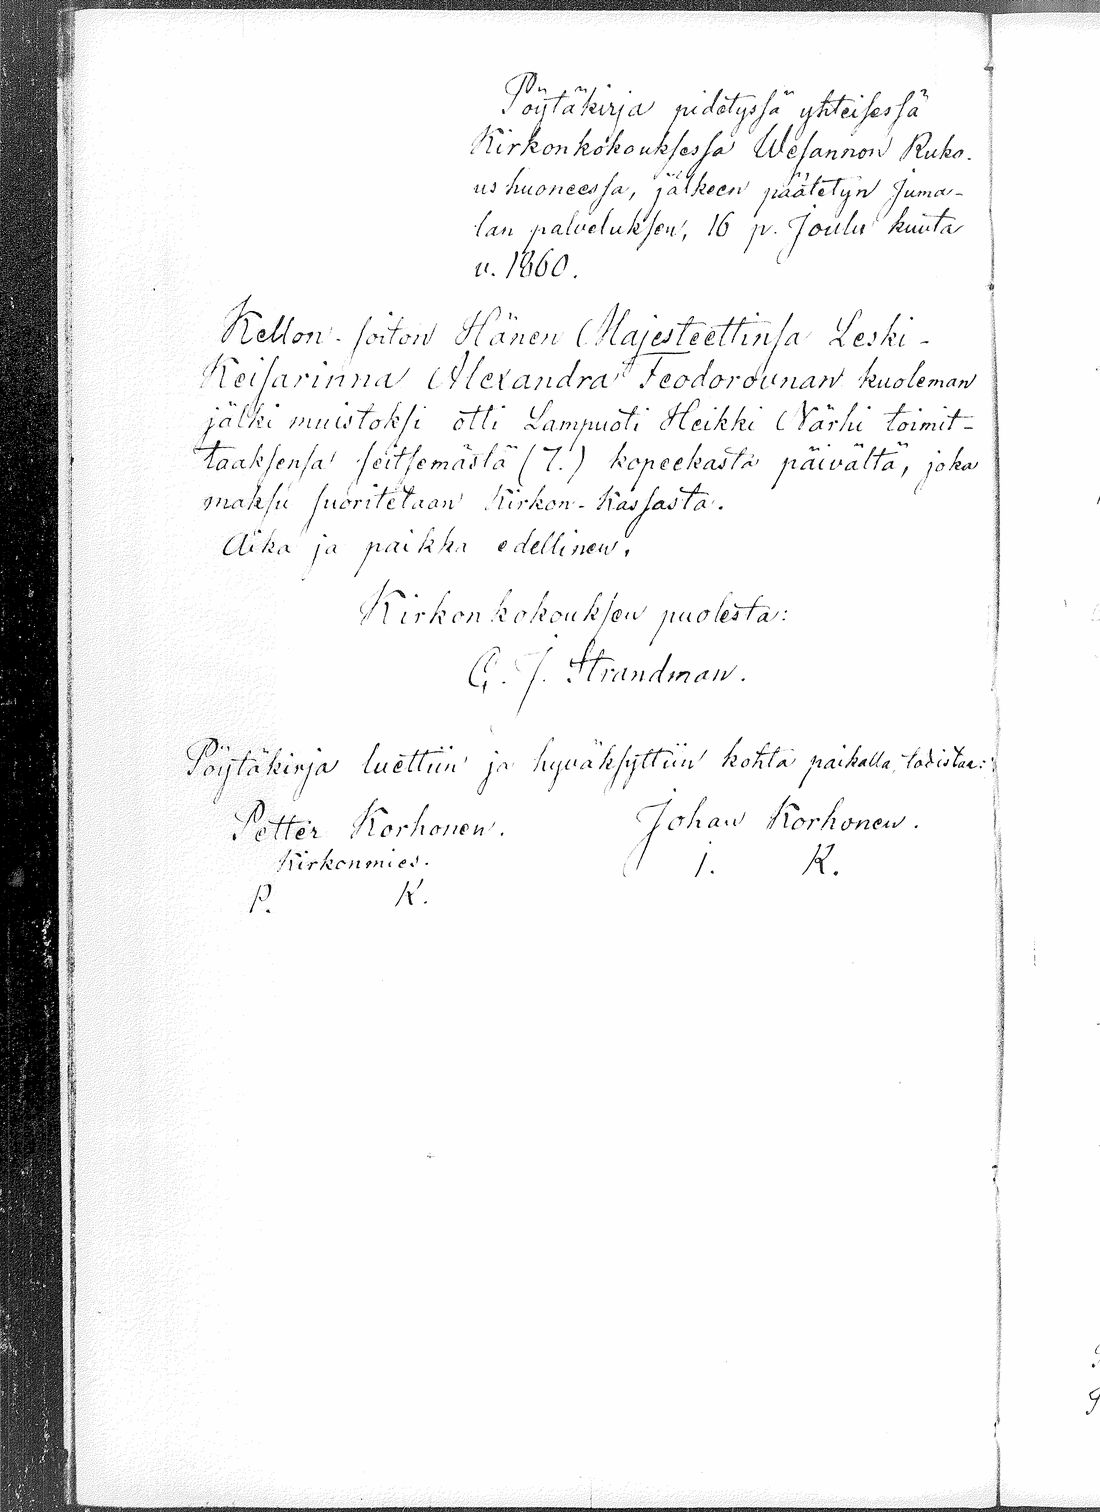 Pöytäkirja pidetyssä yhteisessä
Kirkonkokouksessa Wesannon Ruko-
ushuoneessa, jälkeen päätetyn Juma-
lan palveluksen, 16 p. Joulu kuuta
v. 1860.
Kellon-soiton Hänen Majesteettinsa Leski-
Keisarinna Alexandra Feodorovnan kuoleman
jälki muistoksi otti Lampuoti Heikki Närhi toimit-
taaksensa seitsemästä (7.) kopeekasta päivältä, joka
maksu suoritetaan Kirkon-Kassasta.
Aika ja paikka edellinen.
Kirkonkokouksen puolesta:
G. J. Strandman.
Pöytäkirja luettiin ja hyväksyttiin kohta paikalla, todistaa:
Petter Korhonen. Johan Korhonen.
Kirkonmies. J. K.
P. K.